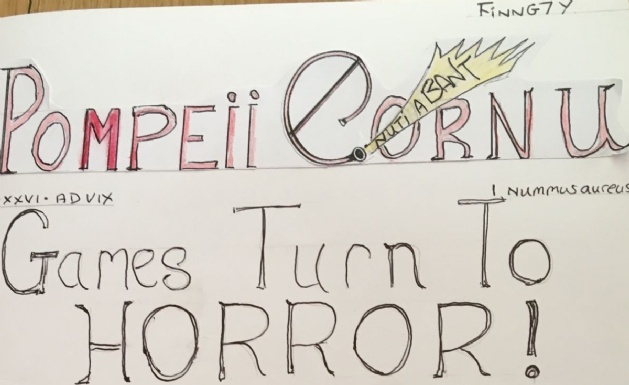 FINNG7Y
POMPEII CORNU
NUTIABANT
XXVI • AD VIX
1 Nummus aureus
Games Turn To
HORROR!